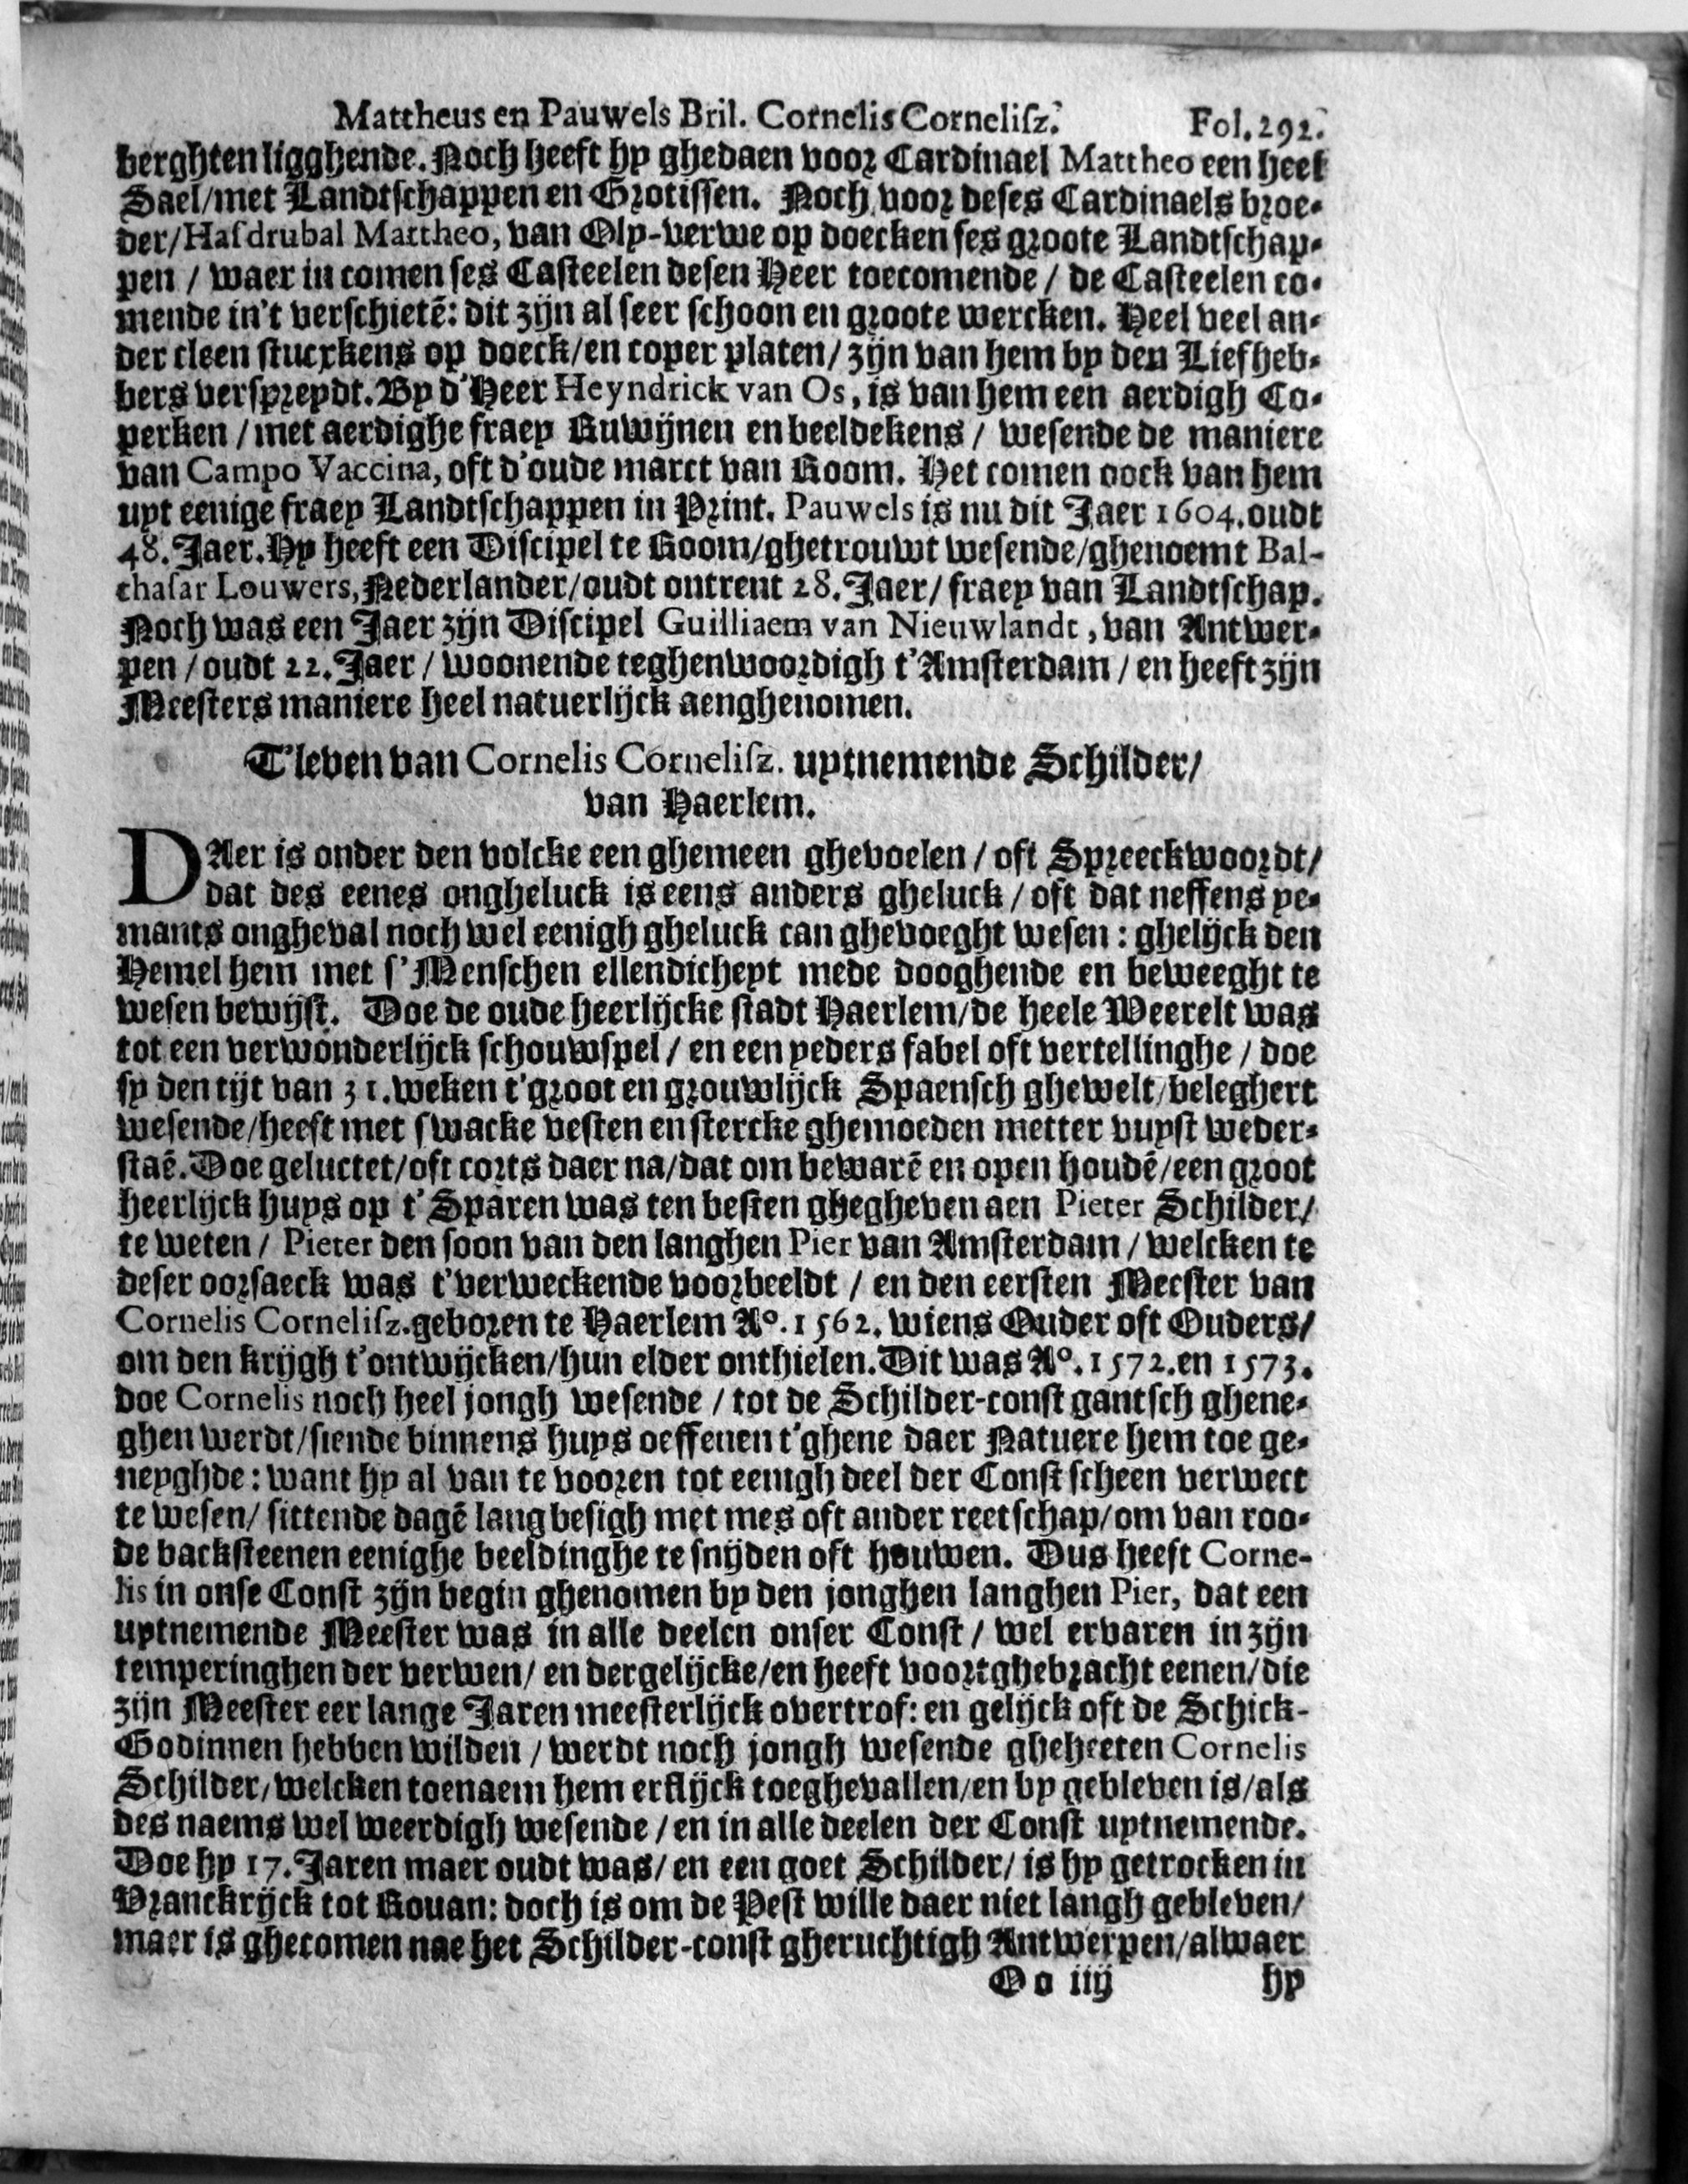 Mattheus en Pauwels Bril. Cornelis Corneliſz. Fol. 292.
berghten ligghende. Noch heeft hy ghedaen voor Cardinael Mattheo een heel
Sael/met Landtſchappen en Grotiſſen. Noch voor deſes Cardinaels broe-
der/Haſdrubal Mattheo, van Oly-verwe op doecken ſes groote Landtſchap-
pen / waer in comen ſes Caſteelen deſen Heer toecomende / de Caſteelen co-
mende in't verſchietē: dit zijn al ſeer ſchoon en groote wercken. Heel veel an-
der cleen ſtucxkens op doeck/en coper platen/ zijn van hem by den Liefheb-
bers verſpreydt. By d'Heer Heyndrick van Os, is van hem een aerdigh Co-
perken / met aerdighe fraey Ruwijnen en beeldekens / weſende de maniere
van Campo Vaccina, oft d'oude marct van Room. Het comen oock van hem
uyt eenige fraey Landtſchappen in Print. Pauwels is nu dit Jaer 1604. oudt
48. Jaer. Hy heeft een Diſcipel te Room/ghetrouwt weſende/ghenoemt Bal-
thaſar Louwers, Nederlander/oudt ontrent 28. Jaer/ fraey van Landtſchap.
Noch was een Jaer zijn Diſcipel Guilliaem van Nieuwlandt, van Antwer-
pen / oudt 22. Jaer / woonende teghenwoordigh t'Amſterdam / en heeft zijn
Meeſters maniere heel natuerlijck aenghenomen.
T'leven van Cornelis Corneliſz. uytnemende Schilder/
van Haerlem.
DAer is onder den volcke een ghemeen ghevoelen / oft Spreeckwoordt/
dat des eenes ongheluck is eens anders gheluck / oft dat neffens ye-
mants ongheval noch wel eenigh gheluck can ghevoeght weſen : ghelijck den
Hemel hem met ſ'Menſchen ellendicheyt mede dooghende en beweeght te
weſen bewijſt. Doe de oude heerlijcke ſtadt Haerlem/de heele Weerelt was
tot een verwonderlijck ſchouwſpel / en een yeders fabel oft vertellinghe / doe
ſy den tijt van 31. weken t'groot en grouwlijck Spaenſch ghewelt/beleghert
weſende/heeft met ſwacke veſten en ſtercke ghemoeden metter vuyſt weder-
ſtaē. Doe geluctet/oft corts daer na/dat om bewarē en open houdē/een groot
heerlijck huys op t'Sparen was ten beſten ghegheven aen Pieter Schilder/
te weten / Pieter den ſoon van den langhen Pier van Amſterdam / welcken te
deſer oorſaeck was t'verweckende voorbeeldt / en den eerſten Meeſter van
Cornelis Corneliſz. geboren te Haerlem Aº. 1562. wiens Ouder oft Ouders/
om den krijgh t'ontwijcken/hun elder onthielen. Dit was Aº. 1572. en 1573.
doe Cornelis noch heel jongh weſende / tot de Schilder-conſt gantſch ghene-
ghen werdt/ſiende binnens huys oeffenen t'ghene daer Natuere hem toe ge-
neyghde : want hy al van te vooren tot eenigh deel der Conſt ſcheen verwect
te weſen/ ſittende dagē lang beſigh met mes oft ander reetſchap/om van roo-
de backſteenen eenighe beeldinghe te ſnijden oft houwen. Dus heeft Corne-
lis in onſe Conſt zijn begin ghenomen by den jonghen langhen Pier, dat een
uytnemende Meeſter was in alle deelen onſer Conſt / wel ervaren in zijn
temperinghen der verwen/ en dergelijcke/en heeft voortghebracht eenen/die
zijn Meeſter eer lange Jaren meeſterlijck overtrof: en gelijck oft de Schick-
Godinnen hebben wilden / werdt noch jongh weſende gheheeten Cornelis
Schilder/welcken toenaem hem erflijck toeghevallen/en by gebleven is/als
des naems wel weerdigh weſende / en in alle deelen der Conſt uytnemende.
Doe hy 17. Jaren maer oudt was/ en een goet Schilder/ is hy getrocken in
Vranckrijck tot Rouan: doch is om de Peſt wille daer niet langh gebleven/
maer is ghecomen nae het Schilder-conſt gheruchtigh Antwerpen/alwaer
Oo iiij hy